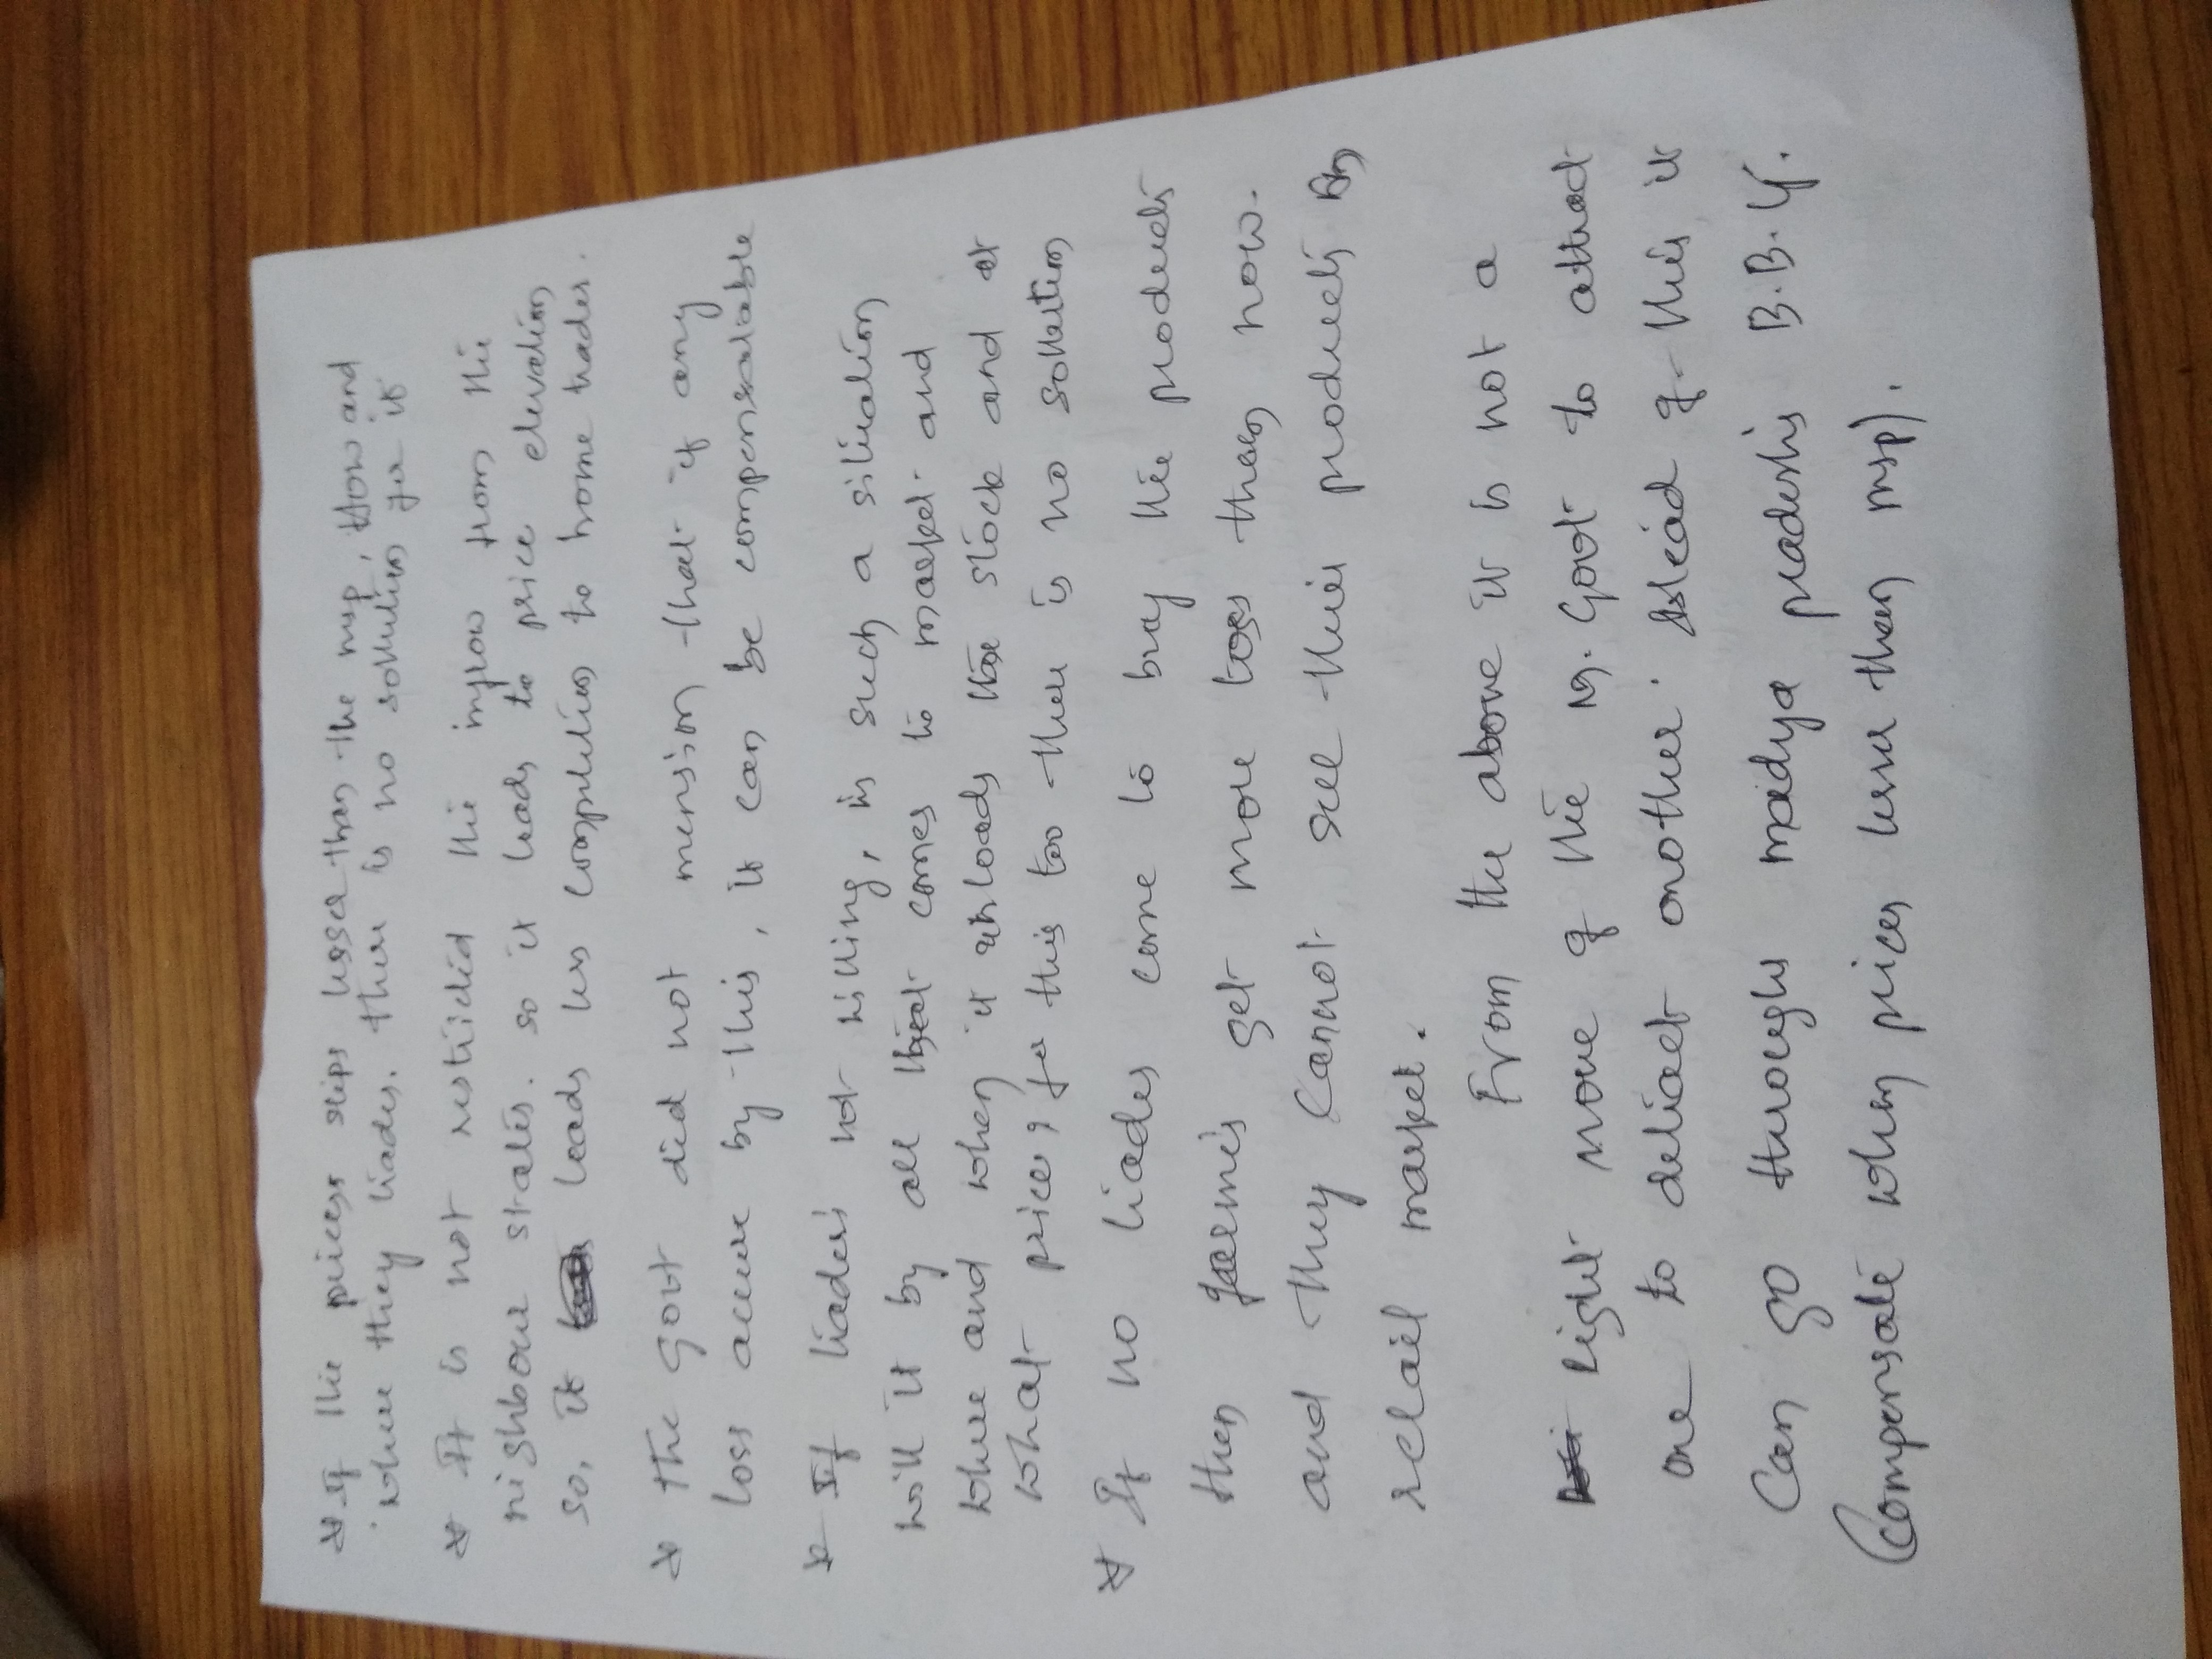 * If the prices slips lesser than the msp, How and
where they trades. there is no solution for it
* It is not restricted the inflow from the
nighbour states. so it leads to price elevation
so, it leads less competition to home trades.
* the govt did not mension that if any
loss accure by this, it can be compensatable
* If traders not willing, in such a situation
will it by all comes to market and
where and when it unloads the stock and at
what price, for this too there is no solution
* If no trades come to buy the products
then farmers get more loss than now.
and they cannot sell their products in
retail market.
From the above it is not a
right move of the M. Govt to attract
one to detract another. Istead of this it
Can go through madya pradesh's B.B.Y.
(compensate when prices less than msp).